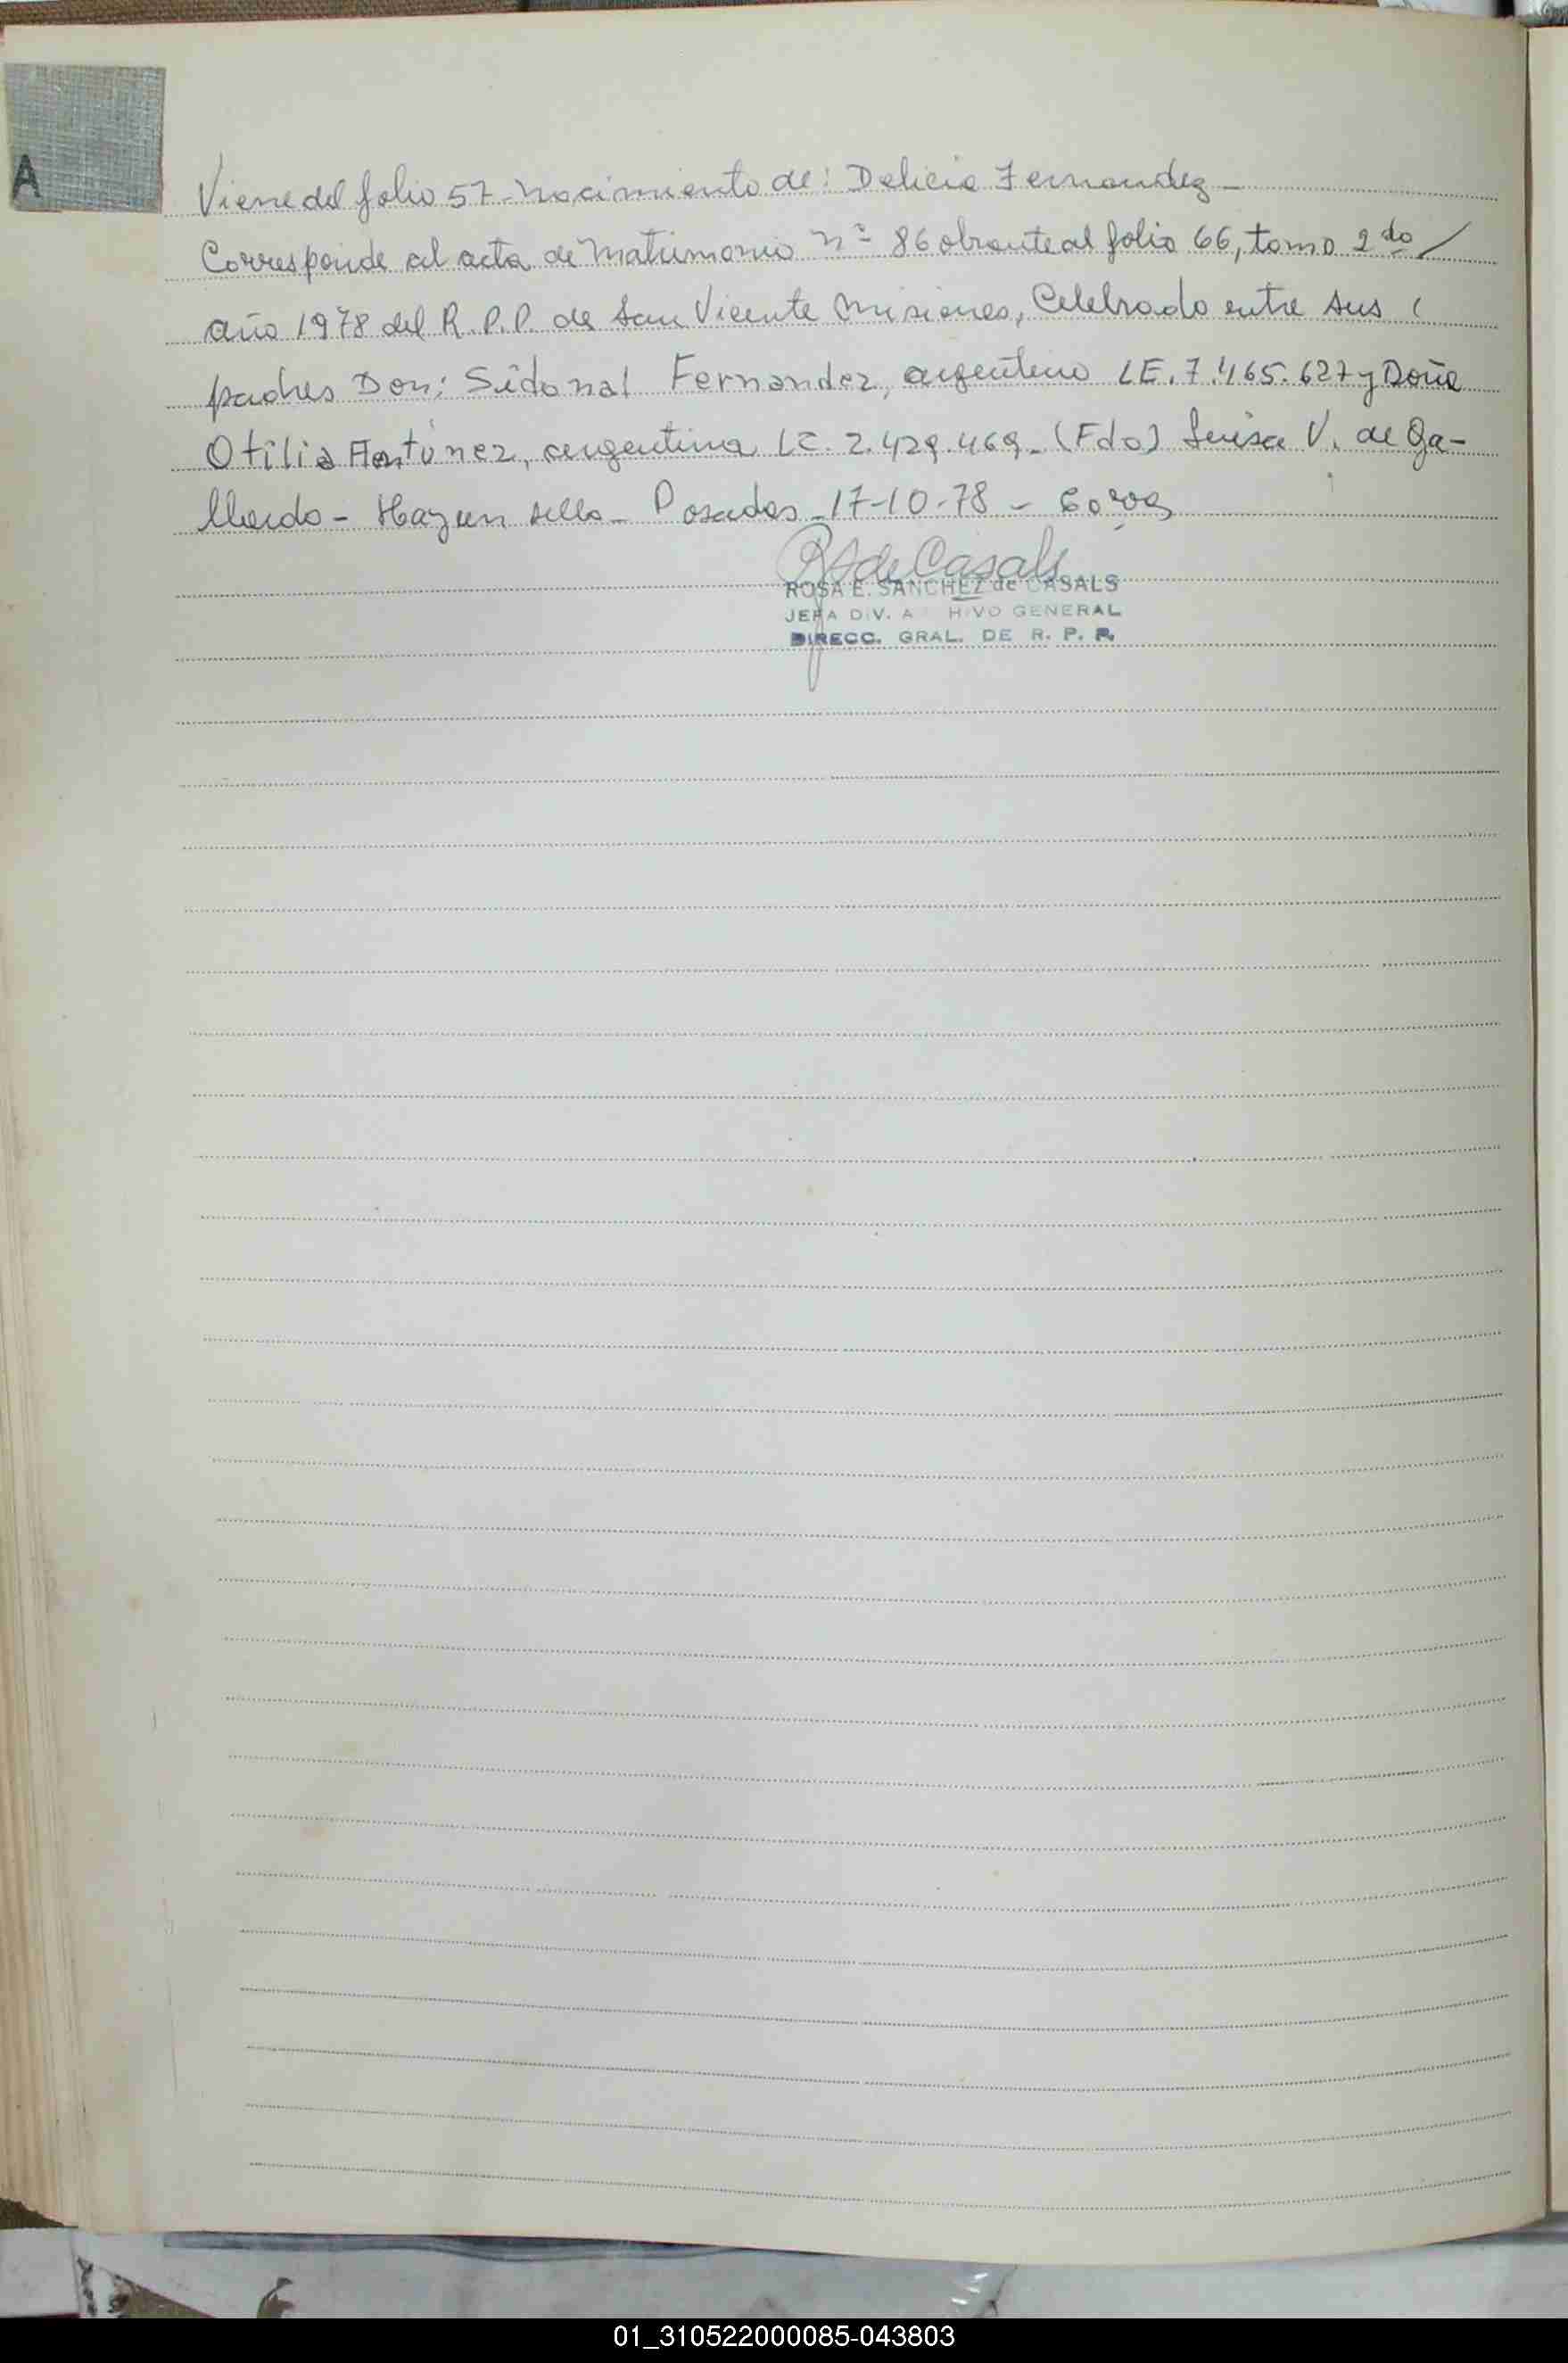 A
Viene del folio 57 - Nacimiento de: Delicia Fernandez -
Corresponde al acta de Matrimonio nº 86 obrante al folio 66, tomo 2do /
año 1978 del R.P.P. de San Vicente Misiones, Celebrado entre sus (
padres Don: Sidonal Fernandez, argentino LE. 7.465.627 y Doña
Otilia Antúnez, argentina LC. 2.429.469 - (Fdo) Luisa V. de Ga-
llardo - Hay un sello - Posadas - 17-10-78 -
R S de Casals
ROSA E. SANCHEZ de CASALS
JEFA DIV. A HIVO GENERAL
DIRECC. GRAL. DE R. P. P.
01_310522000085-043803